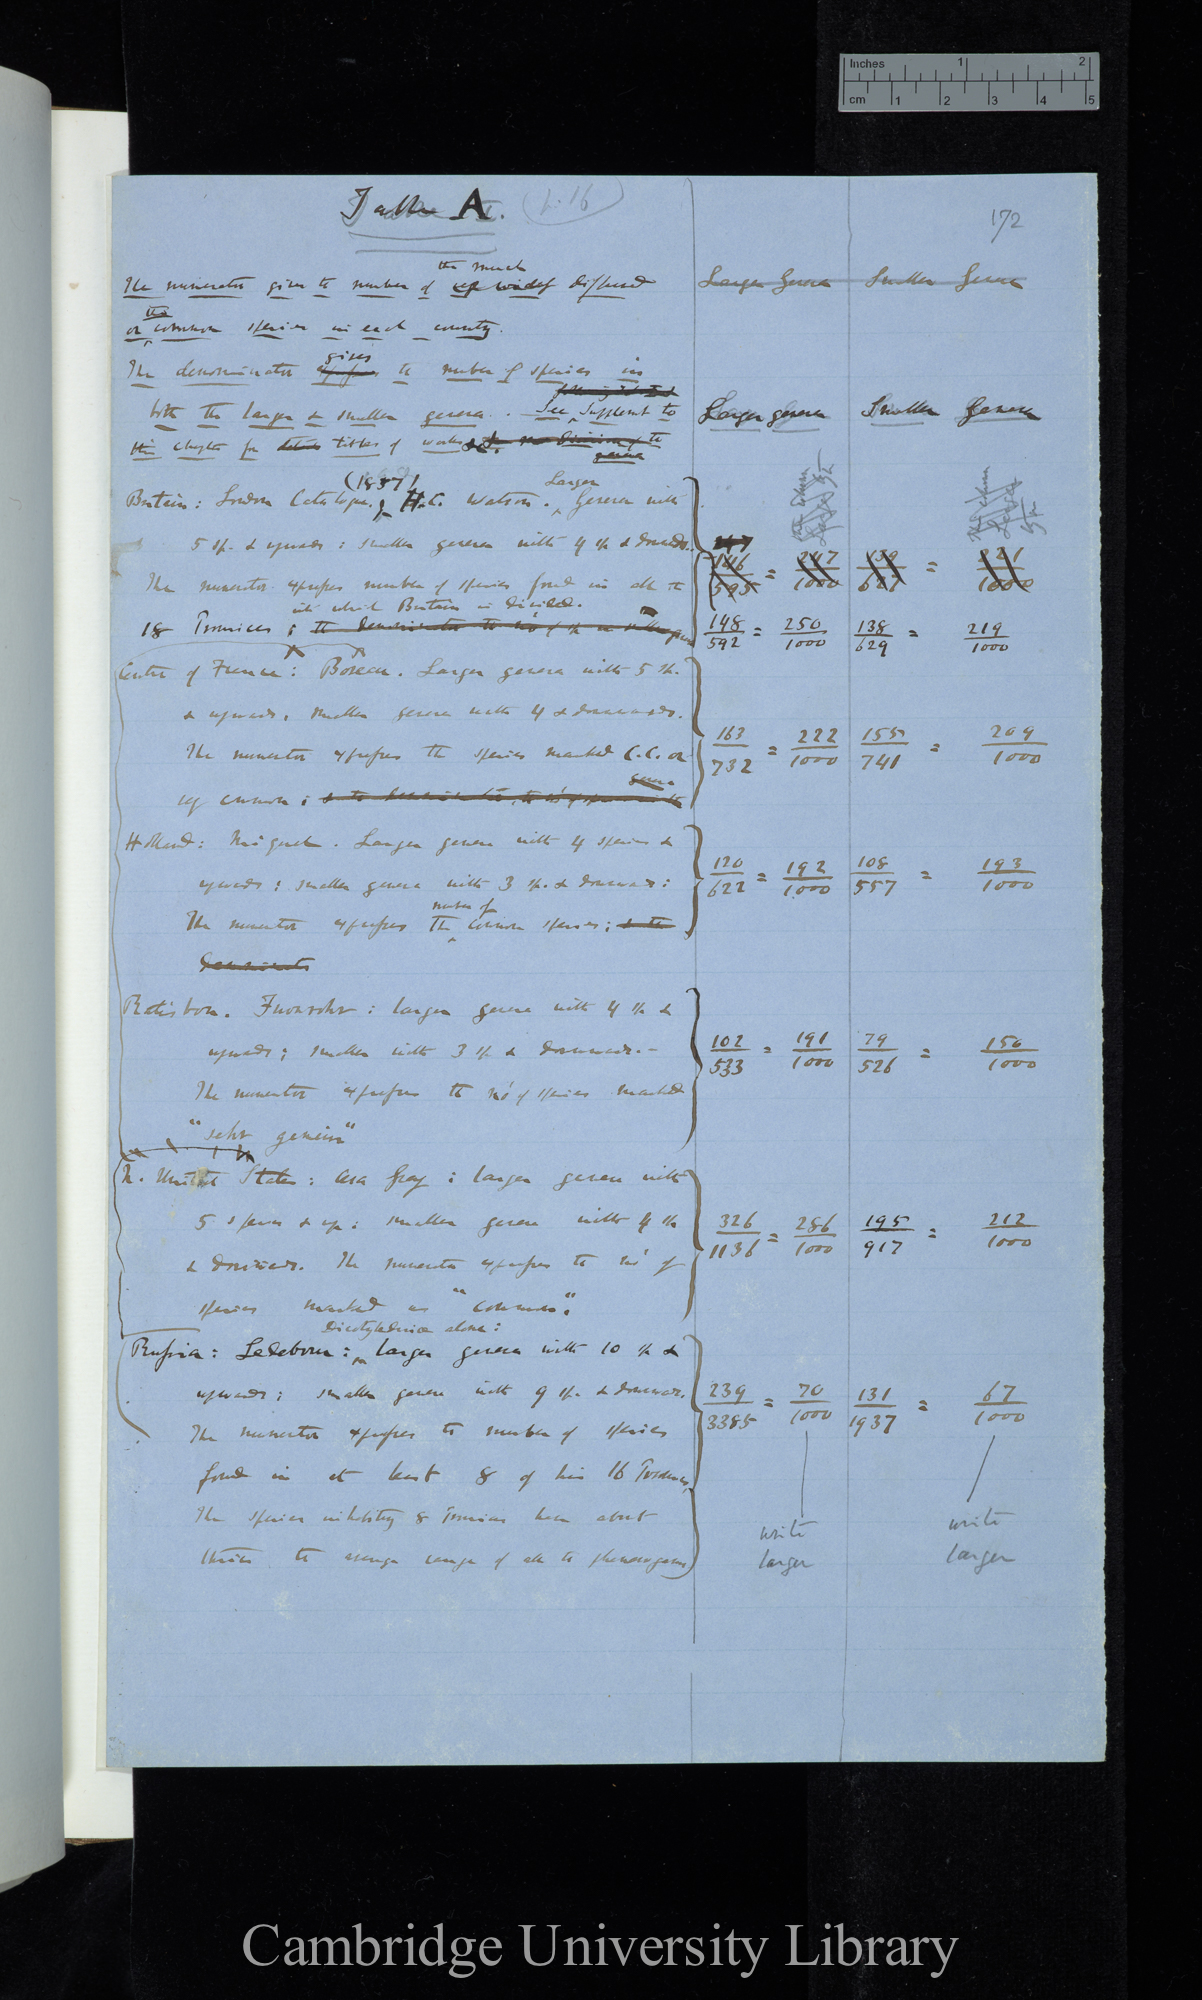 Inches 1 2
cm 1 2 3 4 5
Table A.
172
the much
The numerator gives the number of diffused
Larger Genera Smaller Genera
the
or common species in each country.
gives
The denominator the number of species in
both the larger & smaller genera. See Supplement to
Larger genera Smaller Genera
this chapter for titles of works &c.
(1857) Larger
Britain: London Catalogue, H.C. Watson. Genera with
5 sp. & upwards: smaller genera with 4 sp & downds.
146/595 = 247/1000 139/627 = 221/1000
The numerator expresses number of species found in all the
into which Britain is divided.
18 Provinces
148/592 = 250/1000 138/629 = 219/1000
Centre of France: Boreau. Larger genera with 5 sp.
& upwards, smaller genera with 4 & downwards.
The numerator expresses the species marked C.C. or
163/732 = 222/1000 155/741 = 209/1000
very common;
Holland: Miquel. Larger genera with 4 species &
upwards: smaller genera with 3 sp. & downwards:
120/622 = 192/1000 108/557 = 193/1000
number of
The numerator expresses the common species;
Ratisbon. Fuernrohr: larger genera with 4 sp &
upwards; smaller with 3 sp & downwards.-
102/533 = 191/1000 79/526 = 150/1000
The numerator expresses the no. of species marked
"sehr gemein"
N. United States: Asa Gray: larger genera with
5 species & up: smaller genera with 4 sp
326/1136 = 286/1000 195/917 = 212/1000
& downwards. The numerator expresses the no. of
species marked as "common".
Dicotyledoniae alone:
Russia: Ledebour: larger genera with 10 sp &
upwards; smaller genera with 9 sp. & downwds.
239/3385 = 70/1000 131/1937 = 67/1000
The numerator expresses the number of species
found in at least 8 of his 16 Provinces,
The species inhabiting 8 Provinces have about
thrice the average range of all the phanerogams
write larger
write larger
Cambridge University Library